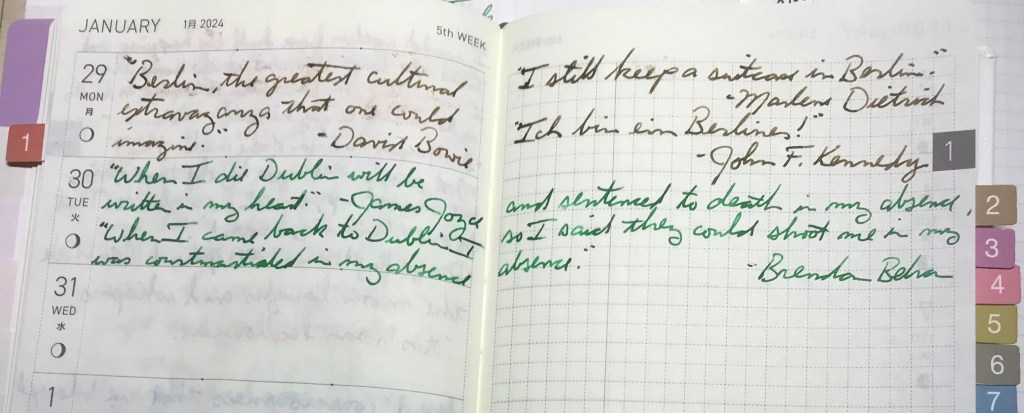 JANUARY 1月 2024
5th WEEK
29
MON
月
"Berlin, the greatest cultural
extravaganza that one could
imagine."
-David Bowie
"I still keep a suitcase in Berlin."
-Marlene Dietrich
"Ich bin ein Berliner!"
-John F. Kennedy
1
1
30
TUE
火
"When I die Dublin will be
written in my heart." -James Joyce
"When I came back to Dublin I
was courtmartialed in my absence
and sentenced to death in my absence,
so I said they could shoot me in my
absence."
-Brendan Behan
31
WED
水
1
2
3
4
5
6
7